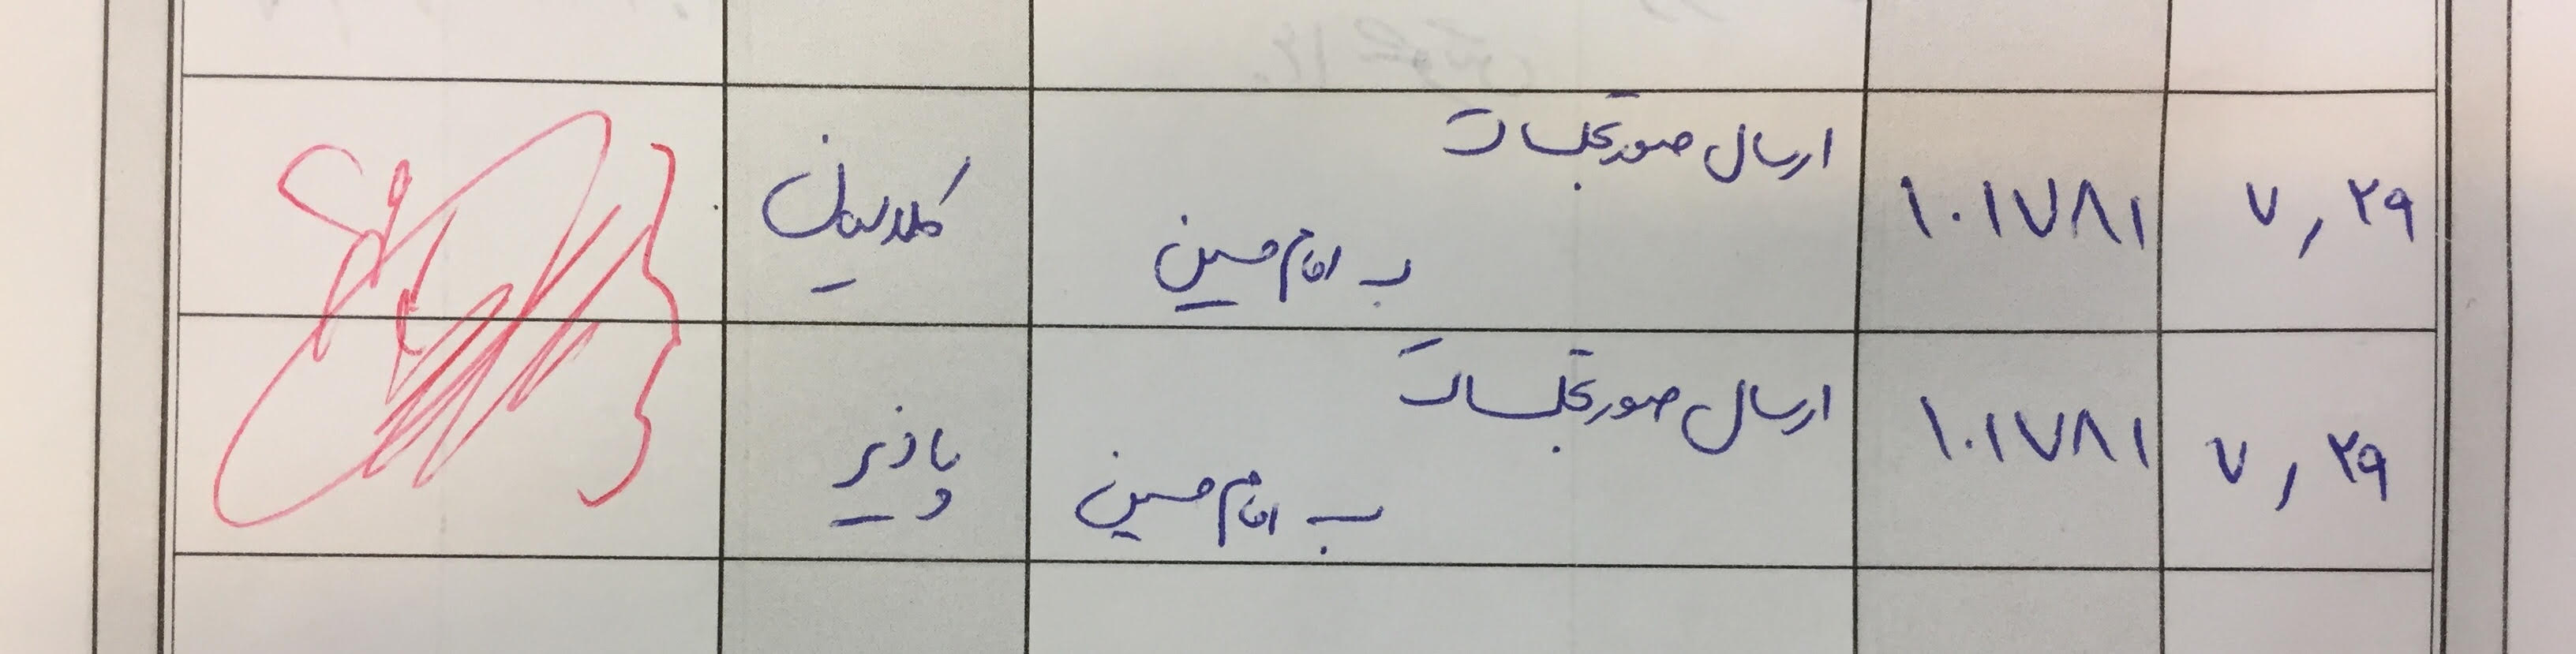 ۷٫۲۹
۱۰۱۷۸۱
ارسال صورتجلسات
به امام حسین
۷٫۲۹
۱۰۱۷۸۱
ارسال صورتجلسات
به امام حسین